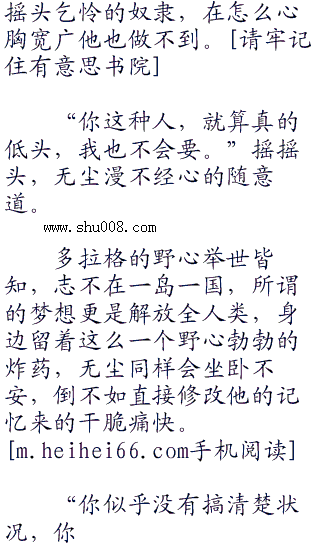 摇头乞怜的奴隶，在怎么心
胸宽广他也做不到。[请牢记
住有意思书院]
“你这种人，就算真的
低头，我也不会要。”摇摇
头，无尘漫不经心的随意
道。
www.shu008.com
多拉格的野心举世皆
知，志不在一岛一国，所谓
的梦想更是解放全人类，身
边留着这么一个野心勃勃的
炸药，无尘同样会坐卧不
安，倒不如直接修改他的记
忆来的干脆痛快。
[m.heihei66.com手机阅读]
“你似乎没有搞清楚状
况，你